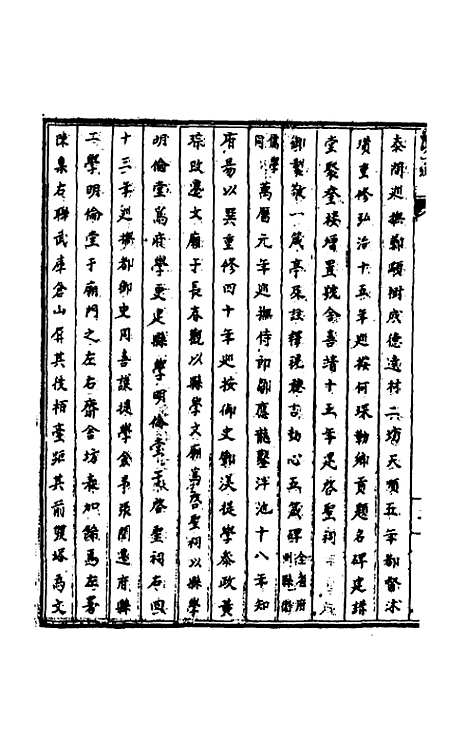 泰間巡撫鄭顒樹成德達材二坊天順五年都督沐
瓚重修弘治十五年巡按何琛勒鄉貢題名碑建講
堂聚奎樓增置號舍嘉靖十五年建啓聖祠
御製敬一箴亭及註釋視聽言動心五箴碑全省府州縣衛
儒學同萬曆元年巡撫侍郎鄒應龍鑿泮池十八年知
府易以巽重修四十年巡按御史鄧渼提學參政黃
琮改遷文廟于長春觀以縣學文廟爲啓聖祠以縣學
明倫堂爲府學更建縣學明倫堂于啓聖祠右四
十三年巡撫都御史周嘉謨提學僉事張聞遷府縣
二學明倫堂于廟門之左右齋舍坊表如餘爲左著
陳臬右聯武庫倉山屏其後栢臺踞其前雙塔爲文